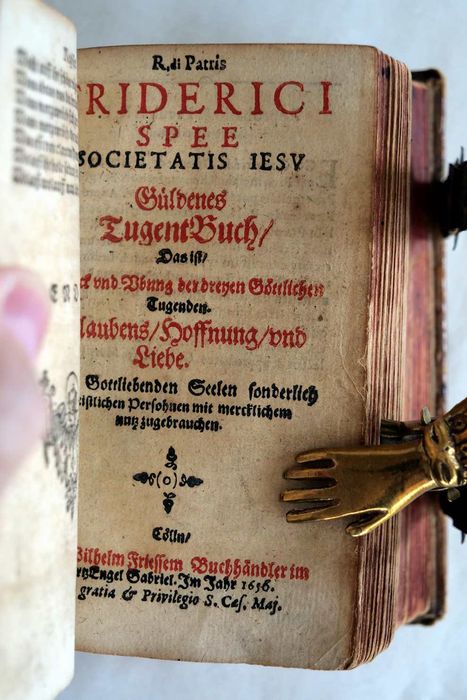 R.di Patris
FRIDERICI
SPEE
SOCIETATIS IESV
Güldenes
TugentBuch/
Das ist/
ck vnd Vbung der dreyen Göttlichen
Tugenden.
laubens/Hoffnung/vnd
Liebe.
Gottliebenden Seelen sonderlich
istlichen Persohnen mit mercklichem
nutz zugebrauchen.
(o)
Cölln/
Wilhelm Friessem Buchhändler im
rtzEngel Gabriel. Im Jahr 1656.
gratia & Privilegio S. Cæs. Maj.